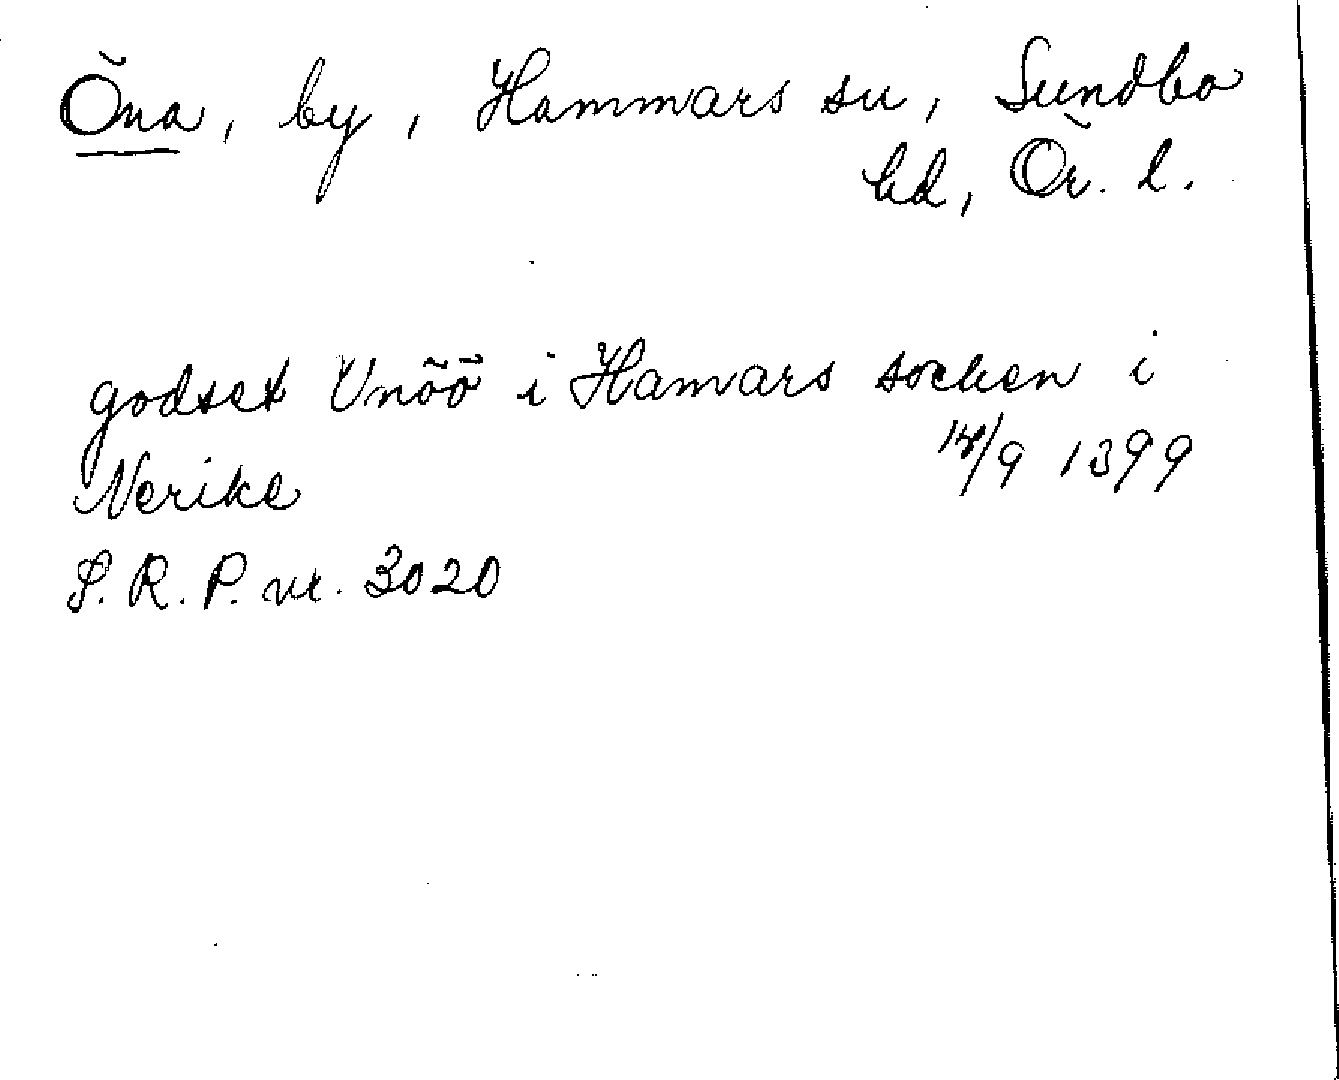 Öna, by, Hammars sn, Sundbo
hd, Ör. l.
godset Vnöö i Hamars socken i
Nerike 1399
S. R. P. nr. 3020